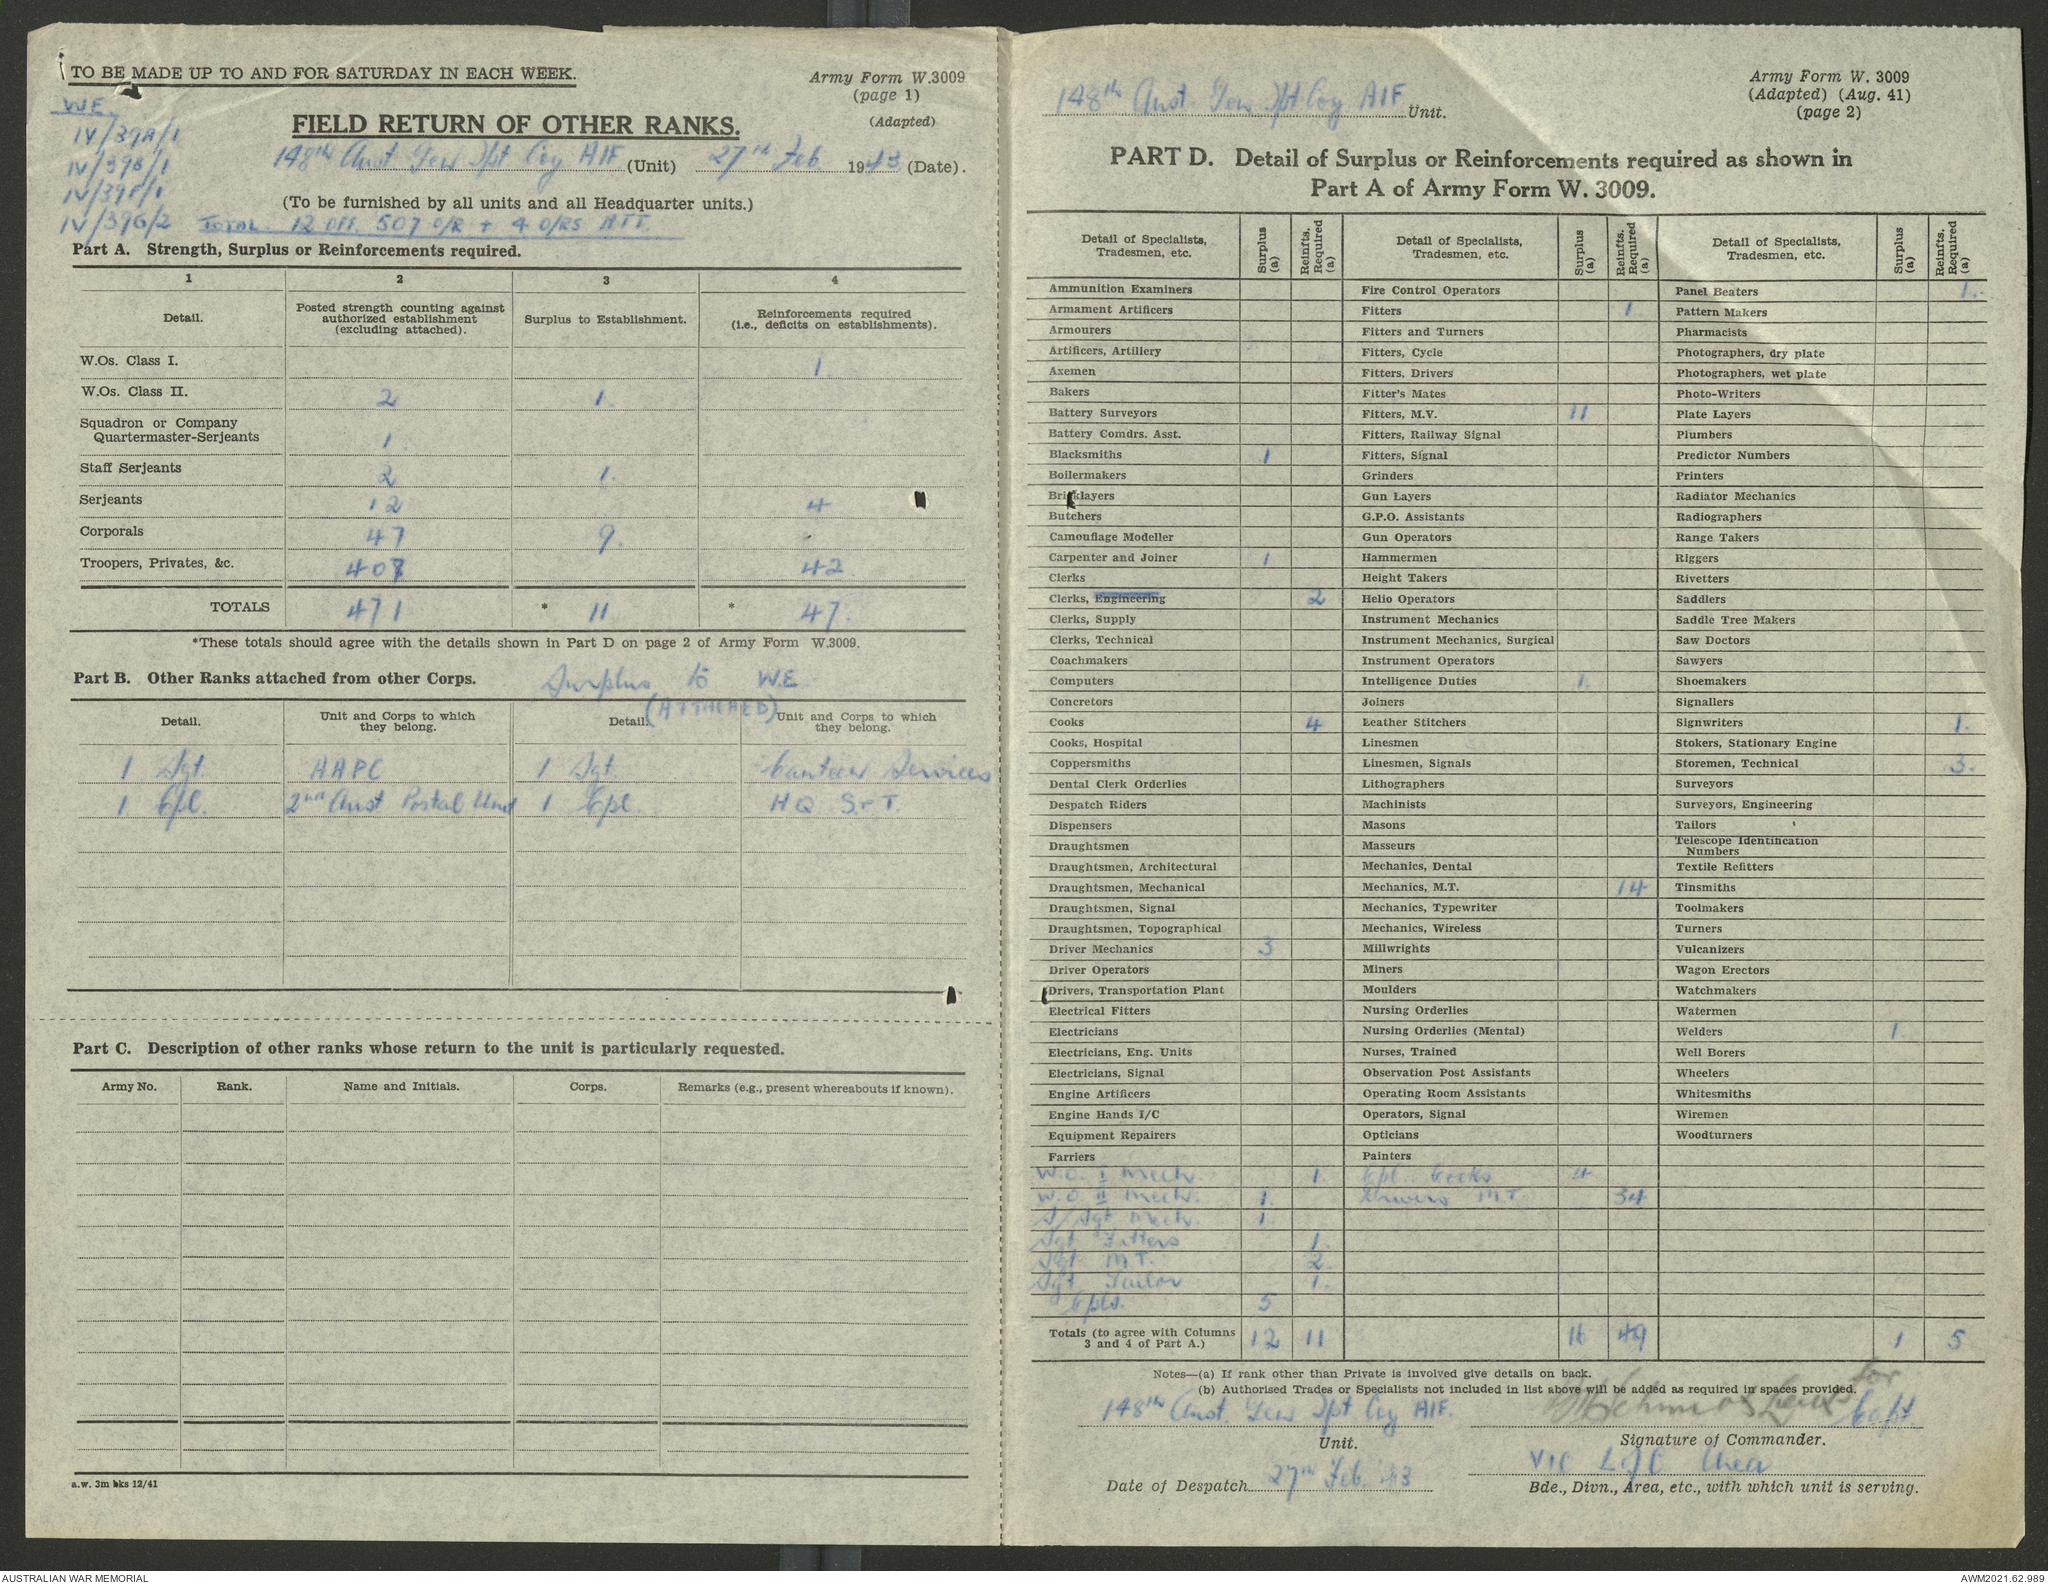 TO BE MADE UP TO AND FOR SATURDAY IN EACH WEEK.
Army Form W.3009
(page 1)
(Adapted)
W.E.
IV/39A/1
IV/39B/1
IV/39F/1
IV/39G/2
FIELD RETURN OF OTHER RANKS.
148th Aust. Gen Tpt Coy AIF (Unit) 27th Feb 1943 (Date).
(To be furnished by all units and all Headquarter units.)
TOTAL 12 OFF. 507 O/R + 4 O/RS ATT.
Part A. Strength, Surplus or Reinforcements required.
1 2 3 4
Detail. Posted strength counting against authorized establishment (excluding attached). Surplus to Establishment. Reinforcements required (i.e., deficits on establishments).
W.Os. Class I. 1
W.Os. Class II. 2 1.
Squadron or Company
Quartermaster-Serjeants 1.
Staff Serjeants 2 1.
Serjeants 12 4
Corporals 47 9.
Troopers, Privates, &c. 407 42
TOTALS 471 * 11 * 47.
*These totals should agree with the details shown in Part D on page 2 of Army Form W.3009.
Part B. Other Ranks attached from other Corps. Surplus to W.E.
(ATTACHED)
Detail. Unit and Corps to which they belong. Detail. Unit and Corps to which they belong.
1 Sgt. AAPC 1 Sgt. Canteen Services
1 Cpl. 2nd Aust Postal Unit 1 Cpl. HQ S+T.
Part C. Description of other ranks whose return to the unit is particularly requested.
Army No. Rank. Name and Initials. Corps. Remarks (e.g., present whereabouts if known).
a.w. 3m bks 12/41
148th Aust. Gen Tpt Coy AIF Unit.
Army Form W. 3009
(Adapted) (Aug. 41)
(page 2)
PART D. Detail of Surplus or Reinforcements required as shown in
Part A of Army Form W. 3009.
Detail of Specialists, Tradesmen, etc. Surplus (a) Reinfts. Required (a) Detail of Specialists, Tradesmen, etc. Surplus (a) Reinfts. Required (a) Detail of Specialists, Tradesmen, etc. Surplus (a) Reinfts. Required (a)
Ammunition Examiners Fire Control Operators Panel Beaters 1.
Armament Artificers Fitters 1 Pattern Makers
Armourers Fitters and Turners Pharmacists
Artificers, Artillery Fitters, Cycle Photographers, dry plate
Axemen Fitters, Drivers Photographers, wet plate
Bakers Fitter's Mates Photo-Writers
Battery Surveyors Fitters, M.V. 11 Plate Layers
Battery Comdrs. Asst. Fitters, Railway Signal Plumbers
Blacksmiths 1 Fitters, Signal Predictor Numbers
Boilermakers Grinders Printers
Bricklayers Gun Layers Radiator Mechanics
Butchers G.P.O. Assistants Radiographers
Camouflage Modeller Gun Operators Range Takers
Carpenter and Joiner 1 Hammermen Riggers
Clerks Height Takers Rivetters
Clerks, Engineering 2 Helio Operators Saddlers
Clerks, Supply Instrument Mechanics Saddle Tree Makers
Clerks, Technical Instrument Mechanics, Surgical Saw Doctors
Coachmakers Instrument Operators Sawyers
Computers Intelligence Duties 1. Shoemakers
Concretors Joiners Signallers
Cooks 4 Leather Stitchers Signwriters 1.
Cooks, Hospital Linesmen Stokers, Stationary Engine
Coppersmiths Linesmen, Signals Storemen, Technical 3.
Dental Clerk Orderlies Lithographers Surveyors
Despatch Riders Machinists Surveyors, Engineering
Dispensers Masons Tailors
Draughtsmen Masseurs Telescope Identification Numbers
Draughtsmen, Architectural Mechanics, Dental Textile Refitters
Draughtsmen, Mechanical Mechanics, M.T. 14 Tinsmiths
Draughtsmen, Signal Mechanics, Typewriter Toolmakers
Draughtsmen, Topographical Mechanics, Wireless Turners
Driver Mechanics 3 Millwrights Vulcanizers
Driver Operators Miners Wagon Erectors
Drivers, Transportation Plant Moulders Watchmakers
Electrical Fitters Nursing Orderlies Watermen
Electricians Nursing Orderlies (Mental) Welders 1.
Electricians, Eng. Units Nurses, Trained Well Borers
Electricians, Signal Observation Post Assistants Wheelers
Engine Artificers Operating Room Assistants Whitesmiths
Engine Hands I/C Operators, Signal Wiremen
Equipment Repairers Opticians Woodturners
Farriers Painters
W.O. I Mech. 1. Cpl. Cooks 4
W.O. II Mech. 1. Drivers M.T. 34
S/Sgt Mech. 1.
Sgt Fitters 1.
Sgt M.T. 2.
Sgt Tailor 1.
Cpls. 5
Totals (to agree with Columns 3 and 4 of Part A.) 12 11 16 49 1 5
Notes—(a) If rank other than Private is involved give details on back.
(b) Authorised Trades or Specialists not included in list above will be added as required in spaces provided.
for
148th Aust. Gen Tpt Coy AIF. Capt
Unit. Signature of Commander.
VIC L of C Area
Date of Despatch 27th Feb 43 Bde., Divn., Area, etc., with which unit is serving.
AUSTRALIAN WAR MEMORIAL
AWM2021.62.989